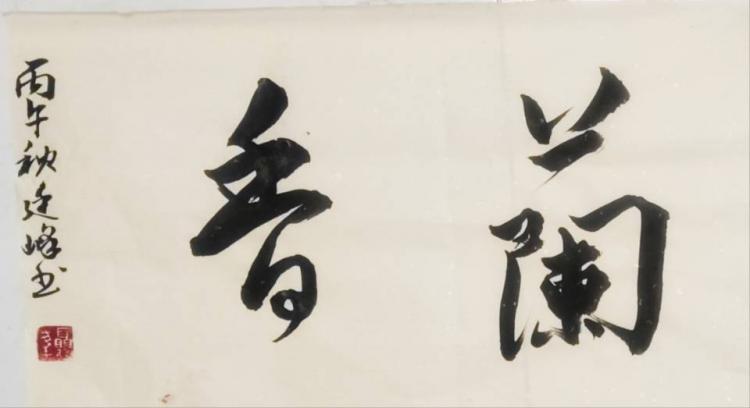 蘭香
丙午秋廷峰书